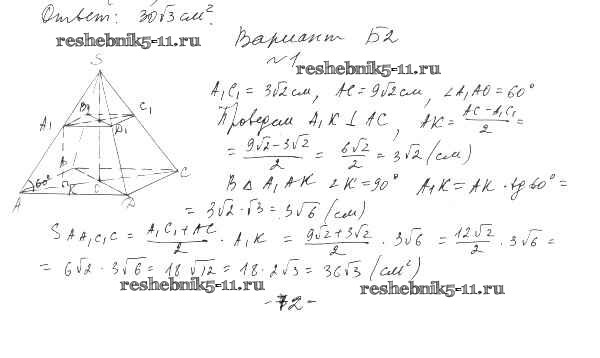 Ответ: 30√3 см².
reshebnik5-11.ru
Вариант Б2
№1
reshebnik5-11.ru
S
B₁ C₁
A₁ D₁
B C
60° K O
A D
A₁C₁ = 3√2 см, AC = 9√2 см, ∠A₁AO = 60°
Проведем A₁K ⊥ AC, AK = (AC - A₁C₁)/2 =
= (9√2 - 3√2)/2 = 6√2/2 = 3√2 (см)
В Δ A₁AK ∠K = 90° A₁K = AK · tg 60° =
= 3√2 · √3 = 3√6 (см)
S AA₁C₁C = (A₁C₁ + AC)/2 · A₁K = (9√2 + 3√2)/2 · 3√6 = 12√2/2 · 3√6 =
= 6√2 · 3√6 = 18√12 = 18 · 2√3 = 36√3 (см²)
reshebnik5-11.ru
reshebnik5-11.ru
-72-